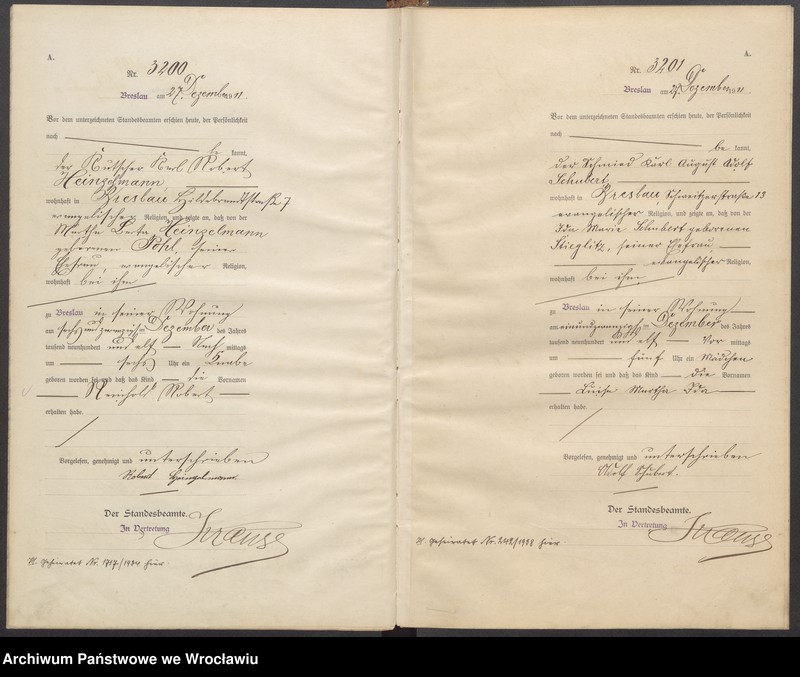 A.
Nr. 3200
Breslau am 27. Dezember 1911.
Vor dem unterzeichneten Standesbeamten erschien heute, der Persönlichkeit
nach be kannt,
der Kutscher Karl Robert
Heinzelmann
wohnhaft in Breslau Hildebrandtstraße 7
evangelischer Religion, und zeigte an, daß von der
Martha Berta Heinzelmann
geborenen Pohl, seiner
Ehefrau, evangelischer Religion,
wohnhaft bei ihm
zu Breslau in seiner Wohnung
am sechsundzwanzigsten Dezember des Jahres
tausend neunhundert und elf Nach mittags
um sechs Uhr ein Knabe
geboren worden sei und daß das Kind die Vornamen
Reinhold Robert
erhalten habe.
Vorgelesen, genehmigt und unterschrieben
Robert Heinzelmann.
Der Standesbeamte.
In Vertretung
Krause
H. Geheiratet Nr. 717/1934 hier.
A.
Nr. 3201
Breslau am 27. Dezember 1911.
Vor dem unterzeichneten Standesbeamten erschien heute, der Persönlichkeit
nach be kannt,
der Schmied Karl August Adolf
Schubert,
wohnhaft in Breslau Schweitzerstraße 13
evangelischer Religion, und zeigte an, daß von der
Ida Marie Schubert geborenen
Stieglitz, seiner Ehefrau
evangelischer Religion,
wohnhaft bei ihm,
zu Breslau in seiner Wohnung
am einundzwanzigsten Dezember des Jahres
tausend neunhundert und elf Vor mittags
um fünf Uhr ein Mädchen
geboren worden sei und daß das Kind die Vornamen
Luise Martha Ida
erhalten habe.
Vorgelesen, genehmigt und unterschrieben
Adolf Schubert.
Der Standesbeamte.
In Vertretung
Krause
H. Geheiratet Nr. 242/1938 hier
Archiwum Państwowe we Wrocławiu